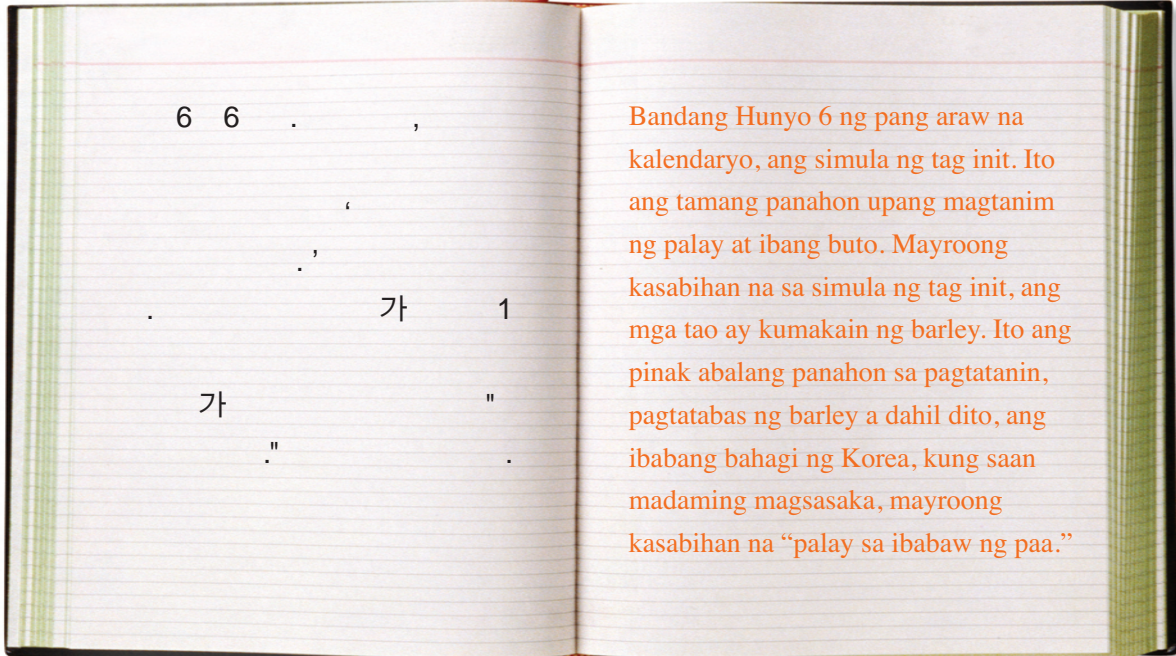 6 6 . ,
‘
. ’
. 가 1
가 "
." .
Bandang Hunyo 6 ng pang araw na
kalendaryo, ang simula ng tag init. Ito
ang tamang panahon upang magtanim
ng palay at ibang buto. Mayroong
kasabihan na sa simula ng tag init, ang
mga tao ay kumakain ng barley. Ito ang
pinak abalang panahon sa pagtatanin,
pagtatabas ng barley a dahil dito, ang
ibabang bahagi ng Korea, kung saan
madaming magsasaka, mayroong
kasabihan na “palay sa ibabaw ng paa.”